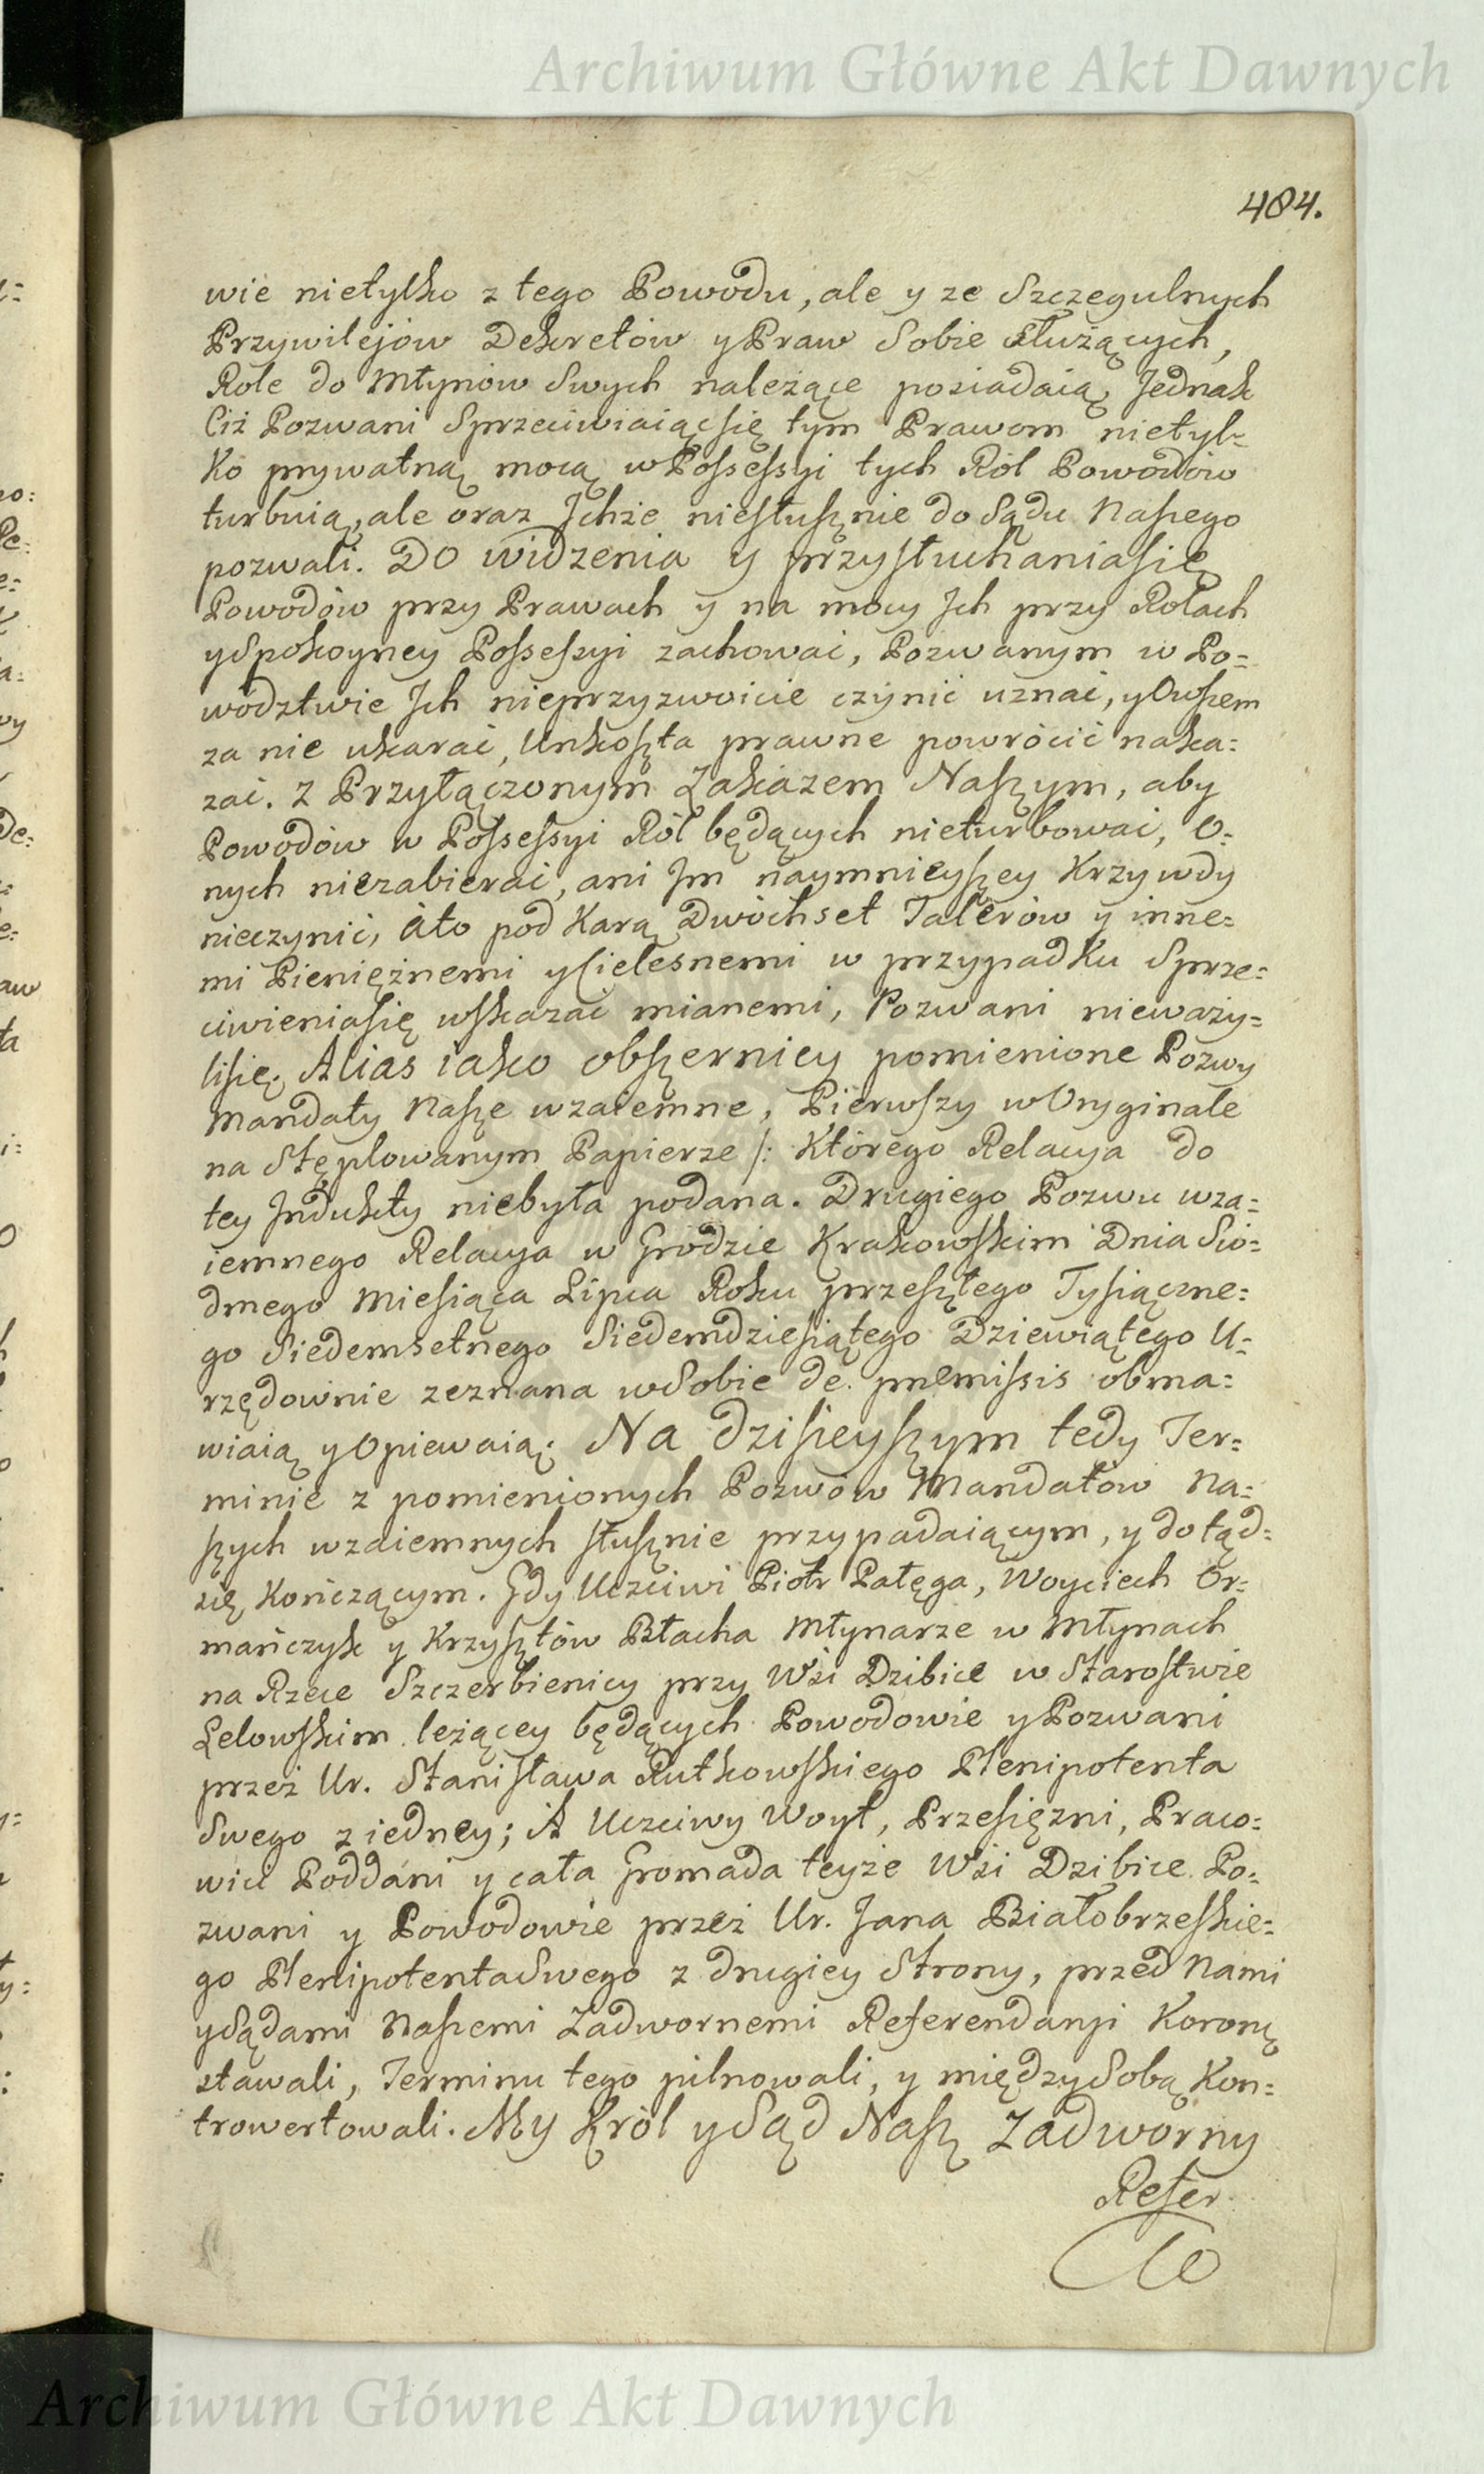 Archiwum Główne Akt Dawnych
484.
wie nietylko z tego Powodu, ale y ze Szczegulnych
Przywilejów Dekretów y Praw Sobie Służących,
Role do Młynów Swych należące posiadaią, Jednak
Ciż Pozwani Sprzeciwiaiąc się tym Prawom nietyl=
ko prywatną mocą w Possessyi tych Ról Powodów
turbuią, ale oraz Jchże niesłusznie do Sądu Naszego
pozwali. Do widzenia y przysłuchania się
Powodów przy Prawach y na mocy Jch przy Rolach
y Spokoyney Possessyi zachować, Pozwanym w Po=
wództwie Jch nieprzyzwoicie czynić uznać, y Owszem
za nie ukarać, Unkoszta prawne powrócić naka=
zać. Z Przyłączonym Zakazem Naszym, aby
Powodów w Possessyi Ról będących nieturbować, O=
nych niezabierać, ani Jm naymnieyszey Krzywdy
nieczynić, áto pod Karą Dwóchset Talerów y inne=
mi Pieniężnemi y Cielesnemi w przypadku Sprze=
ciwienia się wskazać mianemi, Pozwani nieważy=
li się. Alias iako obszerniey pomienione Pozwy
Mandaty Nasze wzaiemne, Pierwszy w Oryginale
na Stęplowanym Papierze /: Którego Relacya do
tey Jndukty niebyła podana. Drugiego Pozwu wza=
iemnego Relacya w Grodzie Krakowskim Dnia Sió=
dmego Miesiąca Lipca Roku przeszłego Tysiączne=
go Siedemsetnego Siedemdziesiątego Dziewiątego U=
rzędownie zeznana w Sobie de præmissis obma=
wiaią y Opiewaią. Na dzisieyszym tedy Ter=
minie z pomienionych Pozwów Mandatów Na=
szych wzaiemnych słusznie przypadaiącym, y dotąd=
się Kończącym. Gdy Uczciwi Piotr Pałęga, Woyciech Or=
mańczyk y Krzysztów Błacha Młynarze w Młynach
na Rzece Szczerbienicy przy Wsi Dzibice w Starostwie
Lelowskim leżącey będących Powodowie y Pozwani
przez Ur. Stanisława Rutkowskiego Plenipotenta
Swego z iedney; A Uczciwy Woyt, Przesięzni, Praco=
wici Poddani y cała Gromada teyże Wsi Dzibice Po=
zwani y Powodowie przez Ur. Jana Białobrzeskie=
go Plenipotenta Swego z drugiey Strony, przed Nami
y Sądami Naszemi Zadwornemi Referendaryi Koronę
stawali, Terminu tego pilnowali, y między Sobą Kon=
trowertowali. My Król y Sąd Nasz Zadworny
Refer
Archiwum Główne Akt Dawnych